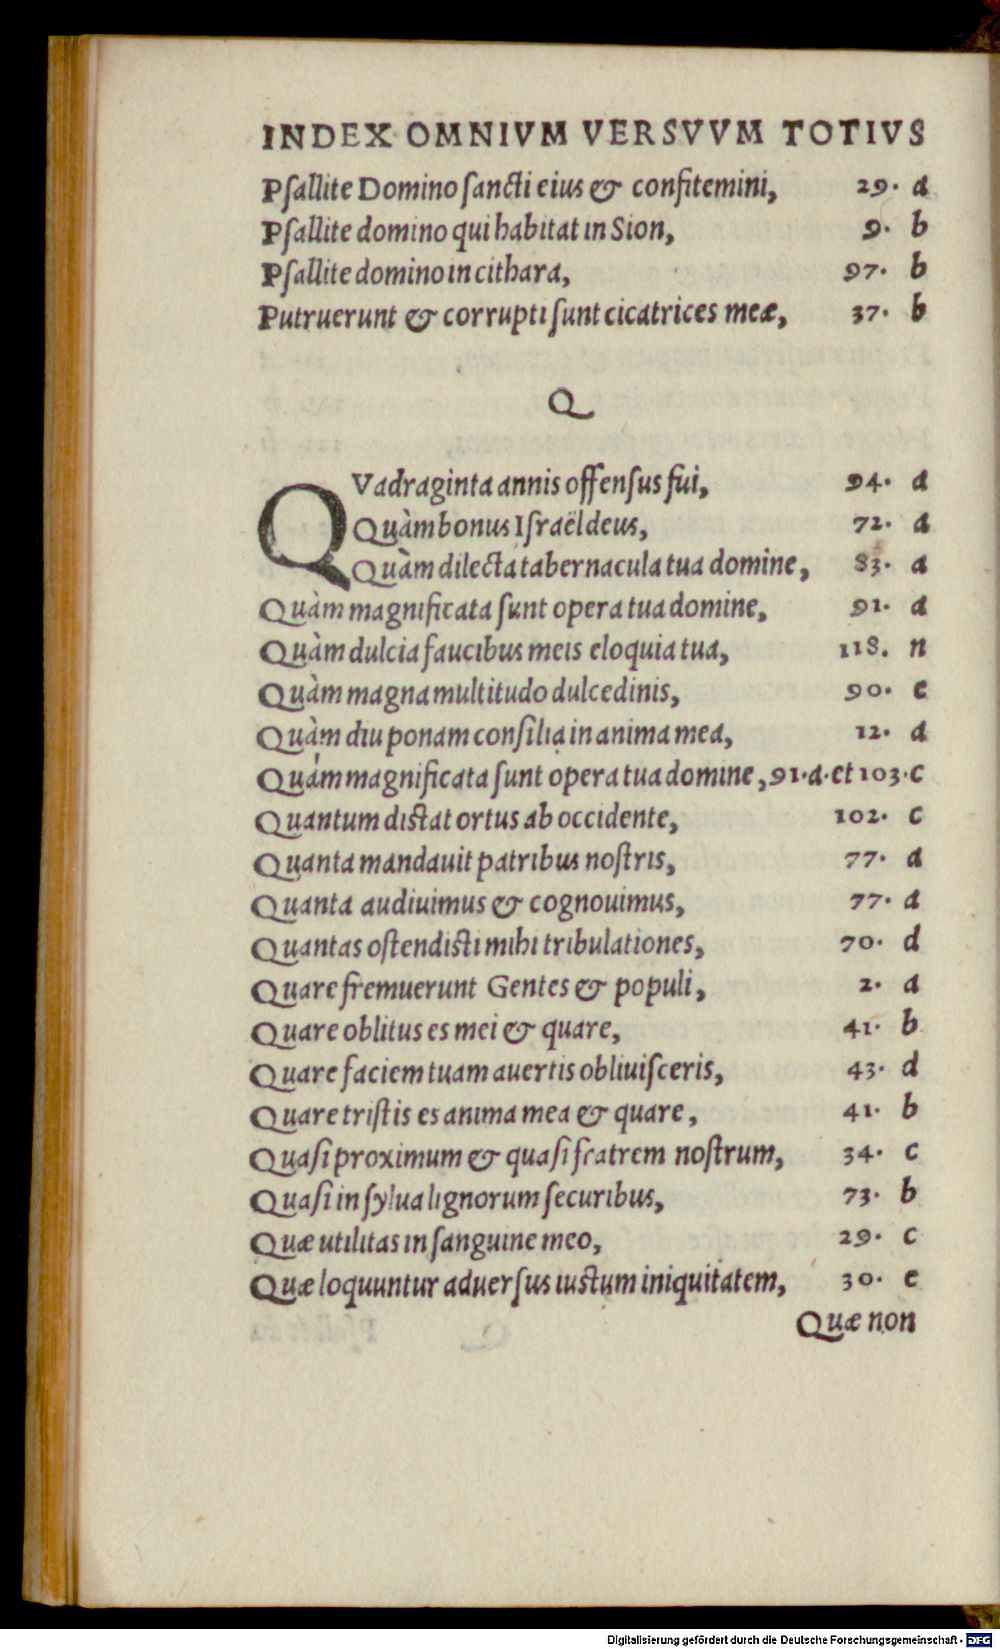 INDEX OMNIVM VERSVVM TOTIVS
Pſallite Domino ſancti eius & confitemini, 29. a
Pſallite domino qui habitat in Sion, 9. b
Pſallite domino in cithara, 97. b
Putruerunt & corrupti ſunt cicatrices meæ, 37. b
Q
QVadraginta annis offenſus fui, 94. d
Quàm bonus Iſraël deus, 72. a
Quàm dilecta tabernacula tua domine, 83. a
Quàm magnificata ſunt opera tua domine, 91. a
Quàm dulcia faucibus meis eloquia tua, 118. n
Quàm magna multitudo dulcedinis, 90. e
Quàm diu ponam conſilia in anima mea, 12. a
Quàm magnificata ſunt opera tua domine, 91. a. et 103. c
Quantum distat ortus ab occidente, 102. c
Quanta mandauit patribus noſtris, 77. a
Quanta audiuimus & cognouimus, 77. a
Quantas oſtendisti mihi tribulationes, 70. d
Quare fremuerunt Gentes & populi, 2. a
Quare oblitus es mei & quare, 41. b
Quare faciem tuam auertis obliuiſceris, 43. d
Quare triſtis es anima mea & quare, 41. b
Quaſi proximum & quaſi fratrem noſtrum, 34. c
Quaſi in ſylua lignorum ſecuribus, 73. b
Quæ utilitas in ſanguine meo, 29. c
Quæ loquuntur aduerſus iustum iniquitatem, 30. e
Quæ non
Digitalisierung gefördert durch die Deutsche Forschungsgemeinschaft - DFG